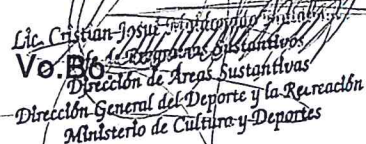 Lic. Cristian Josué
de Programas Sustantivos
Vo.Bo.
Dirección de Áreas Sustantivas
Dirección General del Deporte y la Recreación
Ministerio de Cultura y Deportes